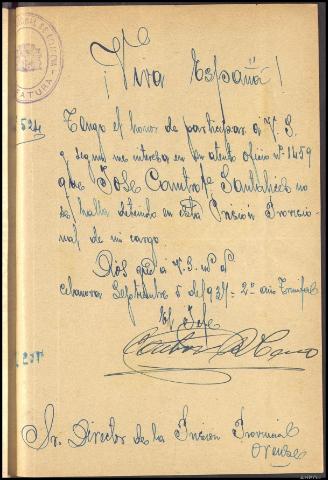 ¡Viva España!
524
Tengo el honor de participar a V. S.
y segun me interesa en su atento oficio nº 1459
que José Santalices no
se halla detenido en esta Prisión Provisio-
nal de mi cargo
Dios gue a V. S. ms as
Celanova Septiembre 5 de 937- 2º año Triunfal
El Jefe
Sr. Director de la Prisión Provincial
Orense